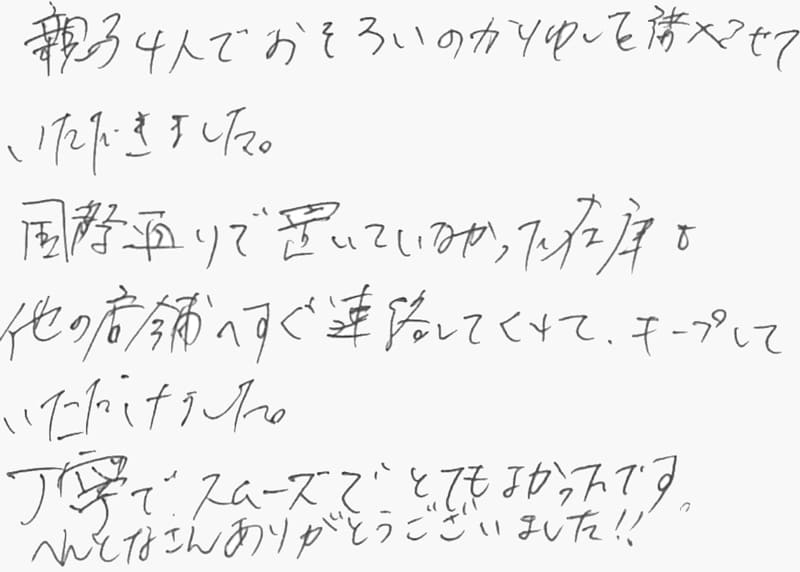 親子4人でおそろいのかりゆしを購入させて
いただきました。
国際通りで置いていなかった在庫も
他の店舗へすぐ連絡してくれて、キープして
いただけました。
丁寧でスムーズでとてもよかったです。
へんとなさんありがとうございました!!